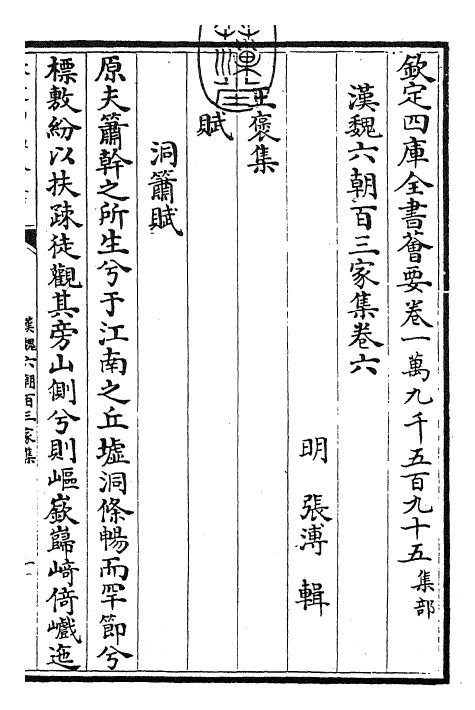 欽定四庫全書薈要卷一萬九千五百九十五集部
漢魏六朝百三家集卷六
明 張溥 輯
王褒集
賦
洞簫賦
原夫簫幹之所生兮于江南之丘墟洞條暢而罕節兮
標敷紛以扶疎徒觀其旁山側兮則嶇嶔巋崎倚巇迤
漢魏六朝百三家集
一